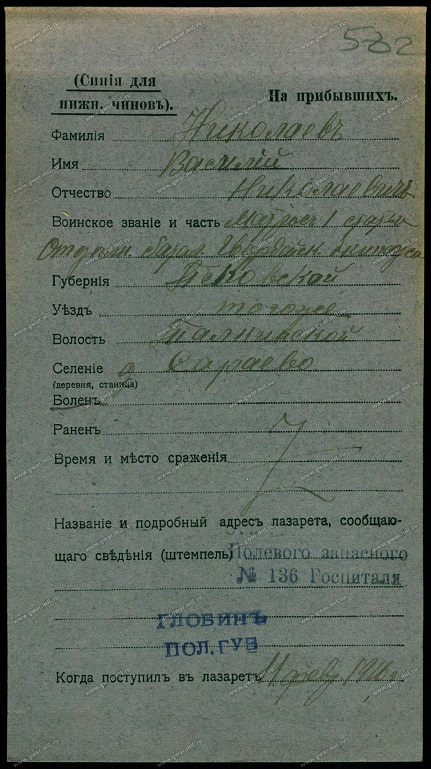 532
(Синія для
нижн. чиновъ).
На прибывшихъ.
Фамилія Николаевъ
Имя Василій
Отчество Николаевичъ
Воинское званіе и часть Матросъ 1 статьи
Губернія Псковской
Уѣздъ тогоже
Волость
Селеніе д Сараево
(деревня, станица)
Боленъ
Раненъ
Время и мѣсто сраженія
Названіе и подробный адресъ лазарета, сообщаю-
щаго свѣдѣнія (штемпель) Полевого запаснаго
№ 136 Госпиталя
ГЛОБИНЪ
ПОЛ.ГУБ
Когда поступил въ лазаретъ